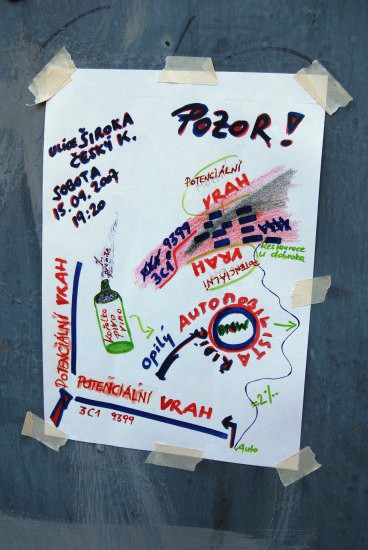 POZOR!
ulice ŠIROKA
ČESKÝ K.
SOBOTA
15.09.2007
19:20
POTENCIÁLNÍ
VRAH
3C1 9399
VRAH
POTENCIÁLNÍ
Restaurace
u dobráka
POTENCIÁLNÍ VRAH
kořalka
pivo
víno
Opilý
AUTOMOBILISTA
Řidič
BMW
=2‰
POTENCIÁLNÍ VRAH
3C1 9399
Auto